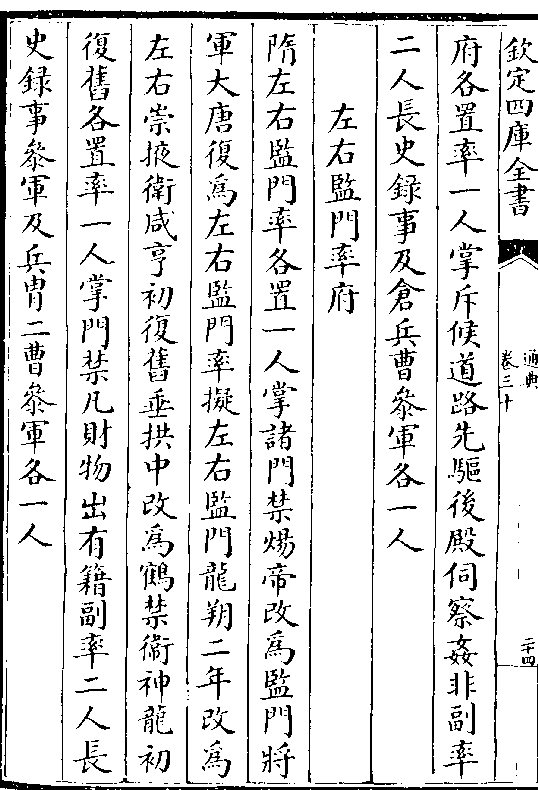 欽定四庫全書
通典
卷三十
二十四
府各置率一人掌斥候道路先驅後殿伺察姦非副率
二人長史録事及倉兵曹叅軍各一人
左右監門率府
隋左右監門率各置一人掌諸門禁煬帝改爲監門將
軍大唐復爲左右監門率擬左右監門龍朔二年改爲
左右崇掖衛咸亨初復舊垂拱中改爲鶴禁衛神龍初
復舊各置率一人掌門禁凡財物出有籍副率二人長
史録事叅軍及兵胄二曹叅軍各一人